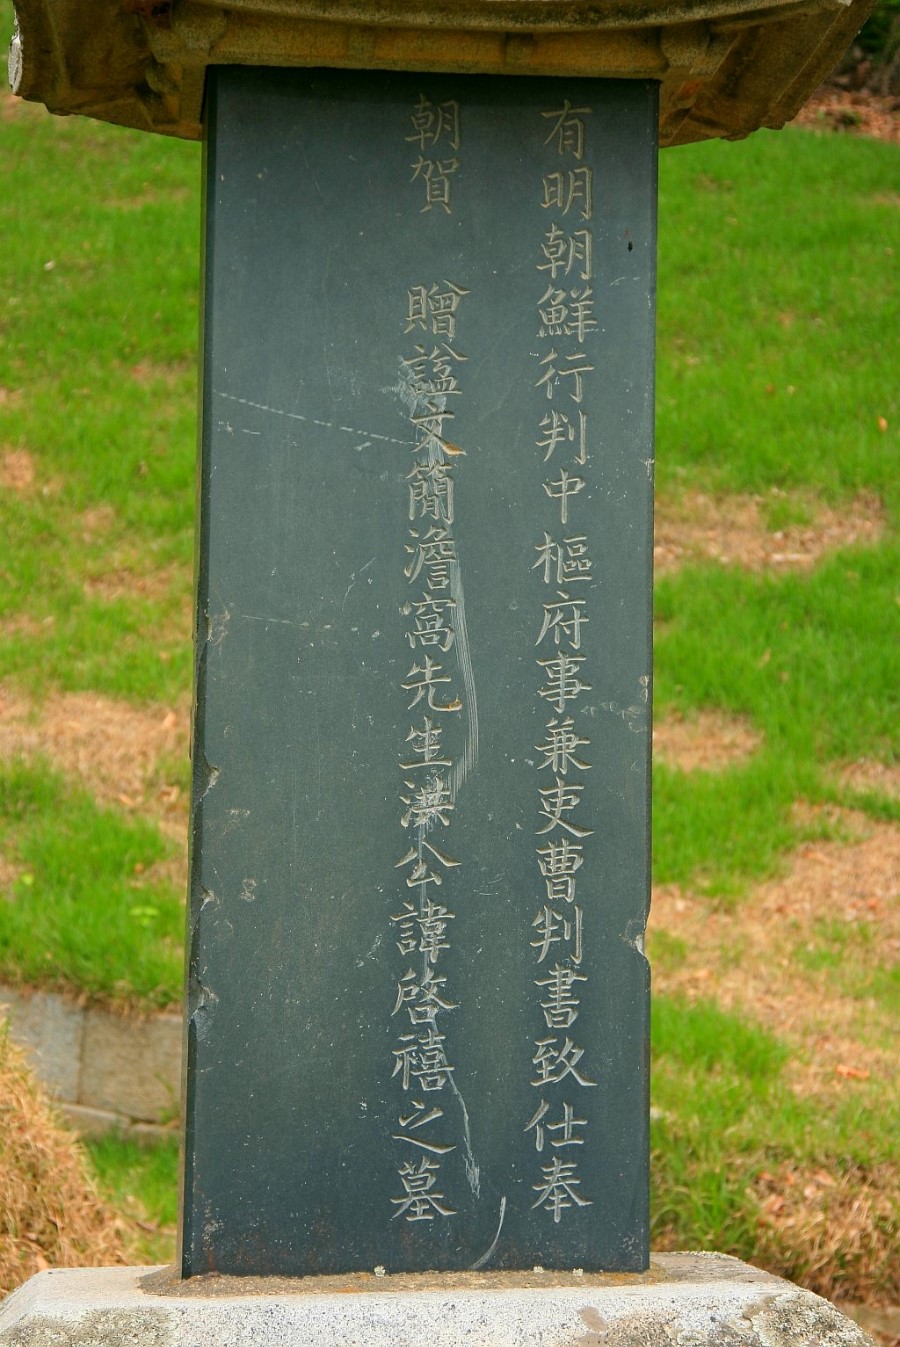 有明朝鮮行判中樞府事兼吏曹判書致仕奉
朝賀 贈諡文簡澹窩先生洪公諱啓禧之墓